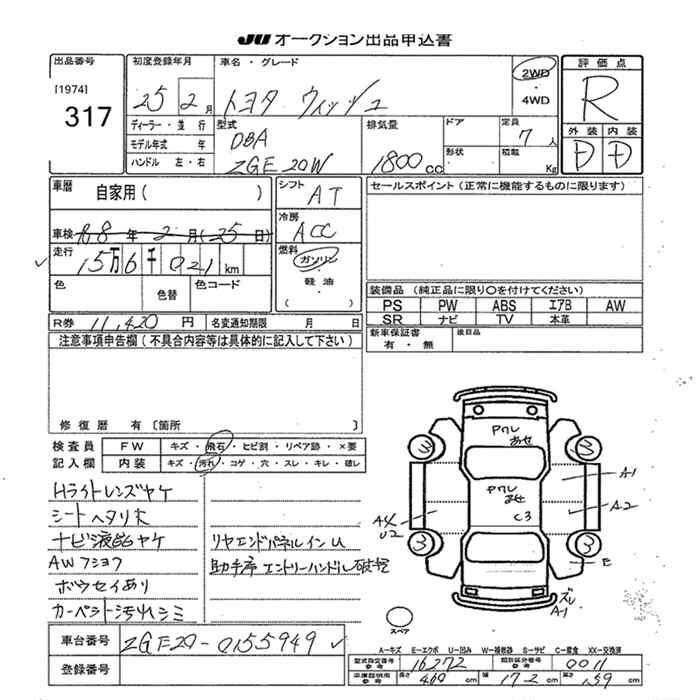 JU オークション出品申込書
出品番号
[1974]
317
初度登録年月
25 2月
車名・グレード
トヨタ ウィッシュ
2WD
・
4WD
評価点
R
外装 内装
D D
ディーラー・並行
モデル年式 年
ハンドル 左・右
型式
DBA
ZGE20W
排気量
1800cc
ドア
形状
定員
7人
積載
Kg
車歴
自家用( )
車検 R8年2月(25日)
走行
15万6千021km
色
色替
色コード
シフト
AT
冷房
ACC
燃料
ガソリン
・
軽油
( )
セールスポイント(正常に機能するものに限ります)
装備品(純正品に限り○を付けてください)
PS PW ABS エアB AW
SR ナビ TV 本革
新車保証書
有・無
後日品
R券 11,420円 名変通知期限 月 日
注意事項申告欄(不具合内容等は具体的に記入して下さい)
修復歴 有〔箇所 〕
検査員
記入欄
FW キズ・飛石・ヒビ割・リペア跡・×要
内装 キズ・汚れ・コゲ・穴・スレ・キレ・破レ
Hライトレンズヤケ
シートヘタリ大
ナビ液晶ヤケ
AWフショク
ボウセイあり
カーペット汚れシミ
リヤエンドパネルインU
助手席エントリーハンドル破損
車台番号 ZGE20-0155949
登録番号
アクレ
あせ
3
3
A-1
アクレ
あせ
C3
A-2
U2
3
3
E
ズレ
A-1
スペア
A-キズ E-エクボ U-凹み W-補修跡 S-サビ C-腐食 XX-交換済
型式指定番号
参考
16272
類別区分番号
参考
0011
車庫証明用
参考
長さ 460cm 幅 172cm 高さ 159cm